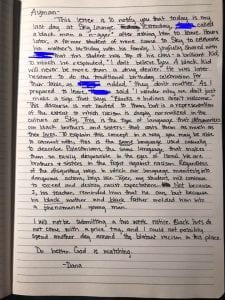 Ayman-
This letter is to notify you that today is my
last day at Sky Lounge. Yesterday, called
a black man a "nigger" after asking him to leave. Hours
later, a former student of mine came to Sky to celebrate
his mother's birthday with his family. I joyfully shared with
that this student was top of his class - a brilliant kid
to which he responded, "I don't believe you. A black kid
will never be more than a drug dealer." He was later
resistant to do the traditional birthday celebration for
their table, as added, "they don't matter." As I
prepared to leave, said "I wonder why we don't just
make a sign that says "Blacks & Indians aren't welcome."
This discourse is not isolated to them, but is a representation
of the extent to which racism is deeply normalized in the
culture at Sky. This is the type of language that dehumanizes
our black brothers and sisters - that puts them as much as
their lives. To explain this concept in a way you may be able
to connect with, this is the same language used casually
to describe Palestinians, the same language that makes
them so easily disposable in the eyes of Israel. We are
brothers & sisters in the fight against racism. Regardless
of the disgusting ways in which our language manifests into
dangerous actions, boys like Tyler, my student, will continue
to exceed and destroy racist expectations. Not because
I, his teacher, reminded him that he can, but because
his black mother and black father molded him into
a phenomenal young man.
I will not be submitting a two week notice. Black lives do
not come with a price tag, and I could not possibly
spend another day around the blatant racism in this place.
Do better. God is watching.
-Dana